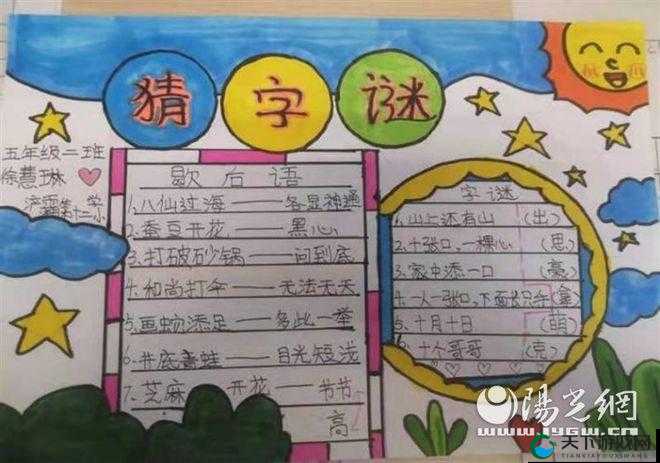 猜字谜
五年级二班
徐慧琳
歇后语
1.八仙过海——各显神通
2.蚕豆开花——黑心
3.打破砂锅——问到底
4.和尚打伞——无法无天
5.画蛇添足——多此一举
6.井底青蛙——目光短浅
7.芝麻开花——节节
高
字谜
1.山上还有山(出)
2.十张口,一棵心(思)
3.家中添一口(豪)
4.一人一张口,下面长只手(拿)
5.十月十日(萌)
6.十个哥哥(克)
陽光網
www.iygw.cn
天下游戏网
TIANXIAYOUXIWANG